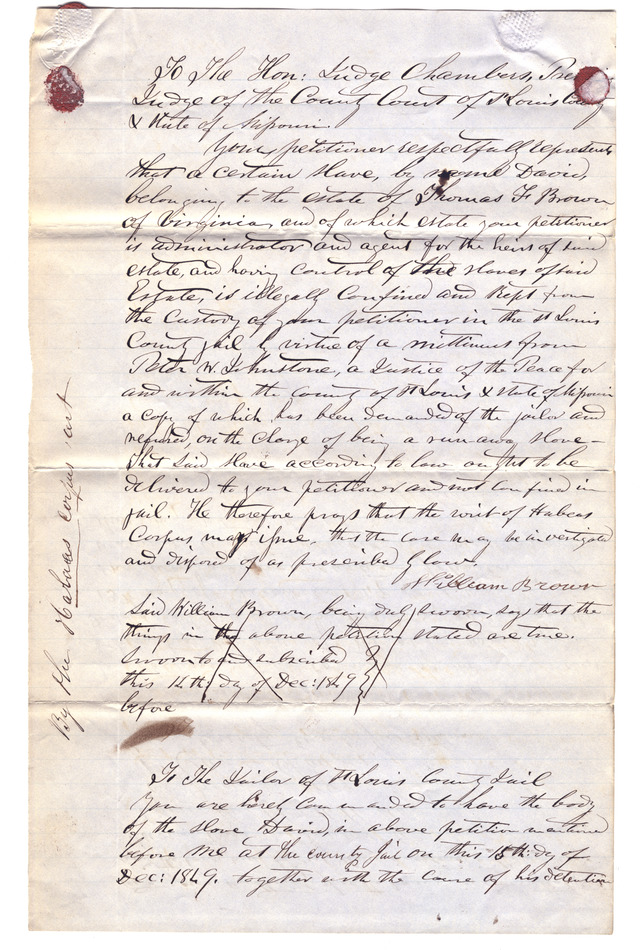 To The Hon: Judge Chambers, Presi
Judge of the County Court of St Louis County
& State of Missouri.
Your petitioner respectfully represents
that a certain slave, by name David,
belonging to the estate of Thomas F Brown
of Virginia, and of which estate your petitioner
is administrator and agent for the heirs of said
estate, and having control of the slaves of said
Estate, is illegally confined and kept from
the custody of your petitioner in the St Louis
County jail by virtue of a mittimus from
Peter W. Johnstone, a Justice of the Peace for
and within the county of St Louis & state of Missouri
a copy of which has been demanded of the jailor and
refused, on the charge of being a run away slave–
That said slave according to law ought to be
delivered to your petitioner and not confined in
jail. He therefore prays that the writ of Habeas
Corpus may issue, that the case may be investigated
and disposed of as prescribed by law.
William Brown
Said William Brown, being duly sworn, says that the
things in the above petition stated are true.
Sworn to and subscribed
this 14th: day of Dec: 1849
before
To The Jailor of St Louis County Jail
You are hereby commanded to have the body
of the slave David, in above petition mentioned
before me at the county Jail on this 15th: day of
Dec: 1849. together with the cause of his detention
By the Habeas Corpus act